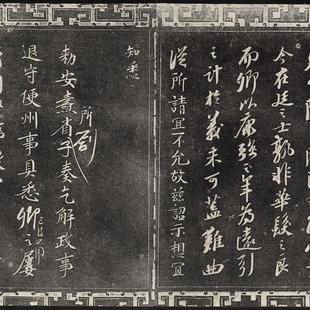 今在廷之士孰非華髮之良
而卿以康強之年為遠引
之計於義未可蓋難曲
從所請宜不允故茲詔示想宜
知悉
所劄
勅安燾省子奏乞解政事
退守便州事具悉卿之屢